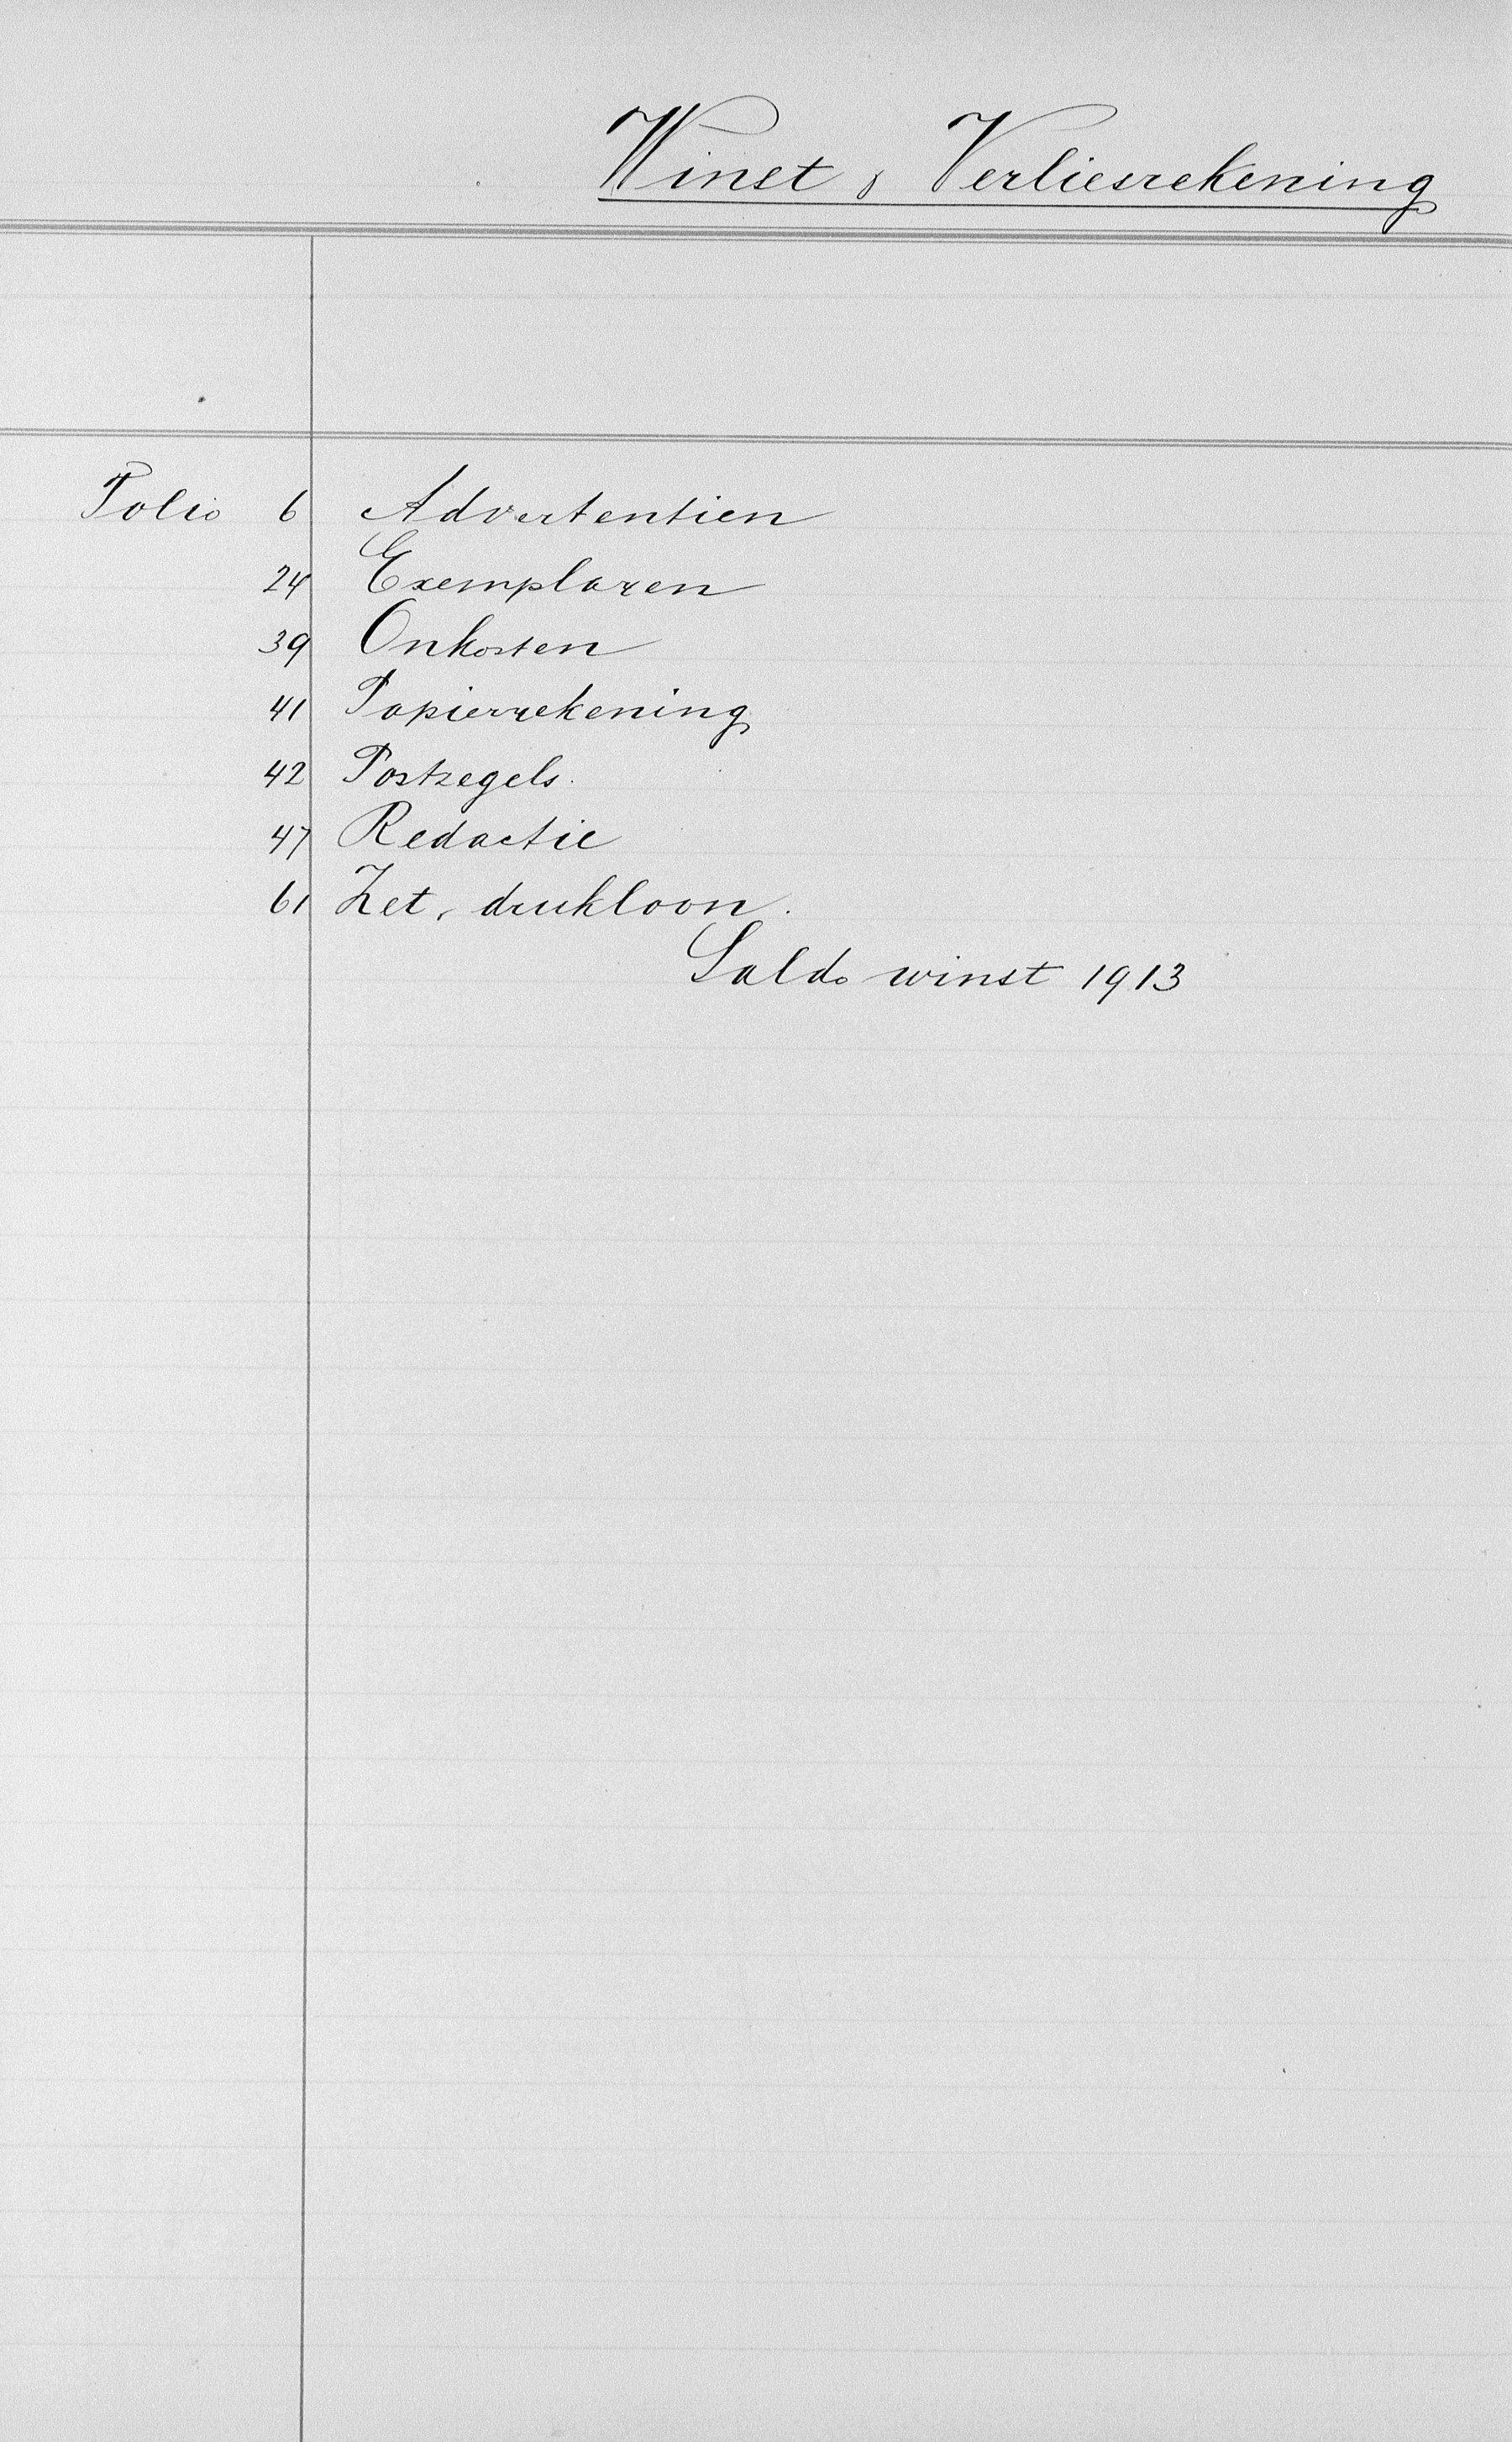 Winst & Verliesrekening
Folio 6 Advertentien
24 Exemplaren
39 Onkosten
41 Papierrekening
42 Postzegels.
47 Redactie
61 Zet & drukloon.
Saldo winst 1913